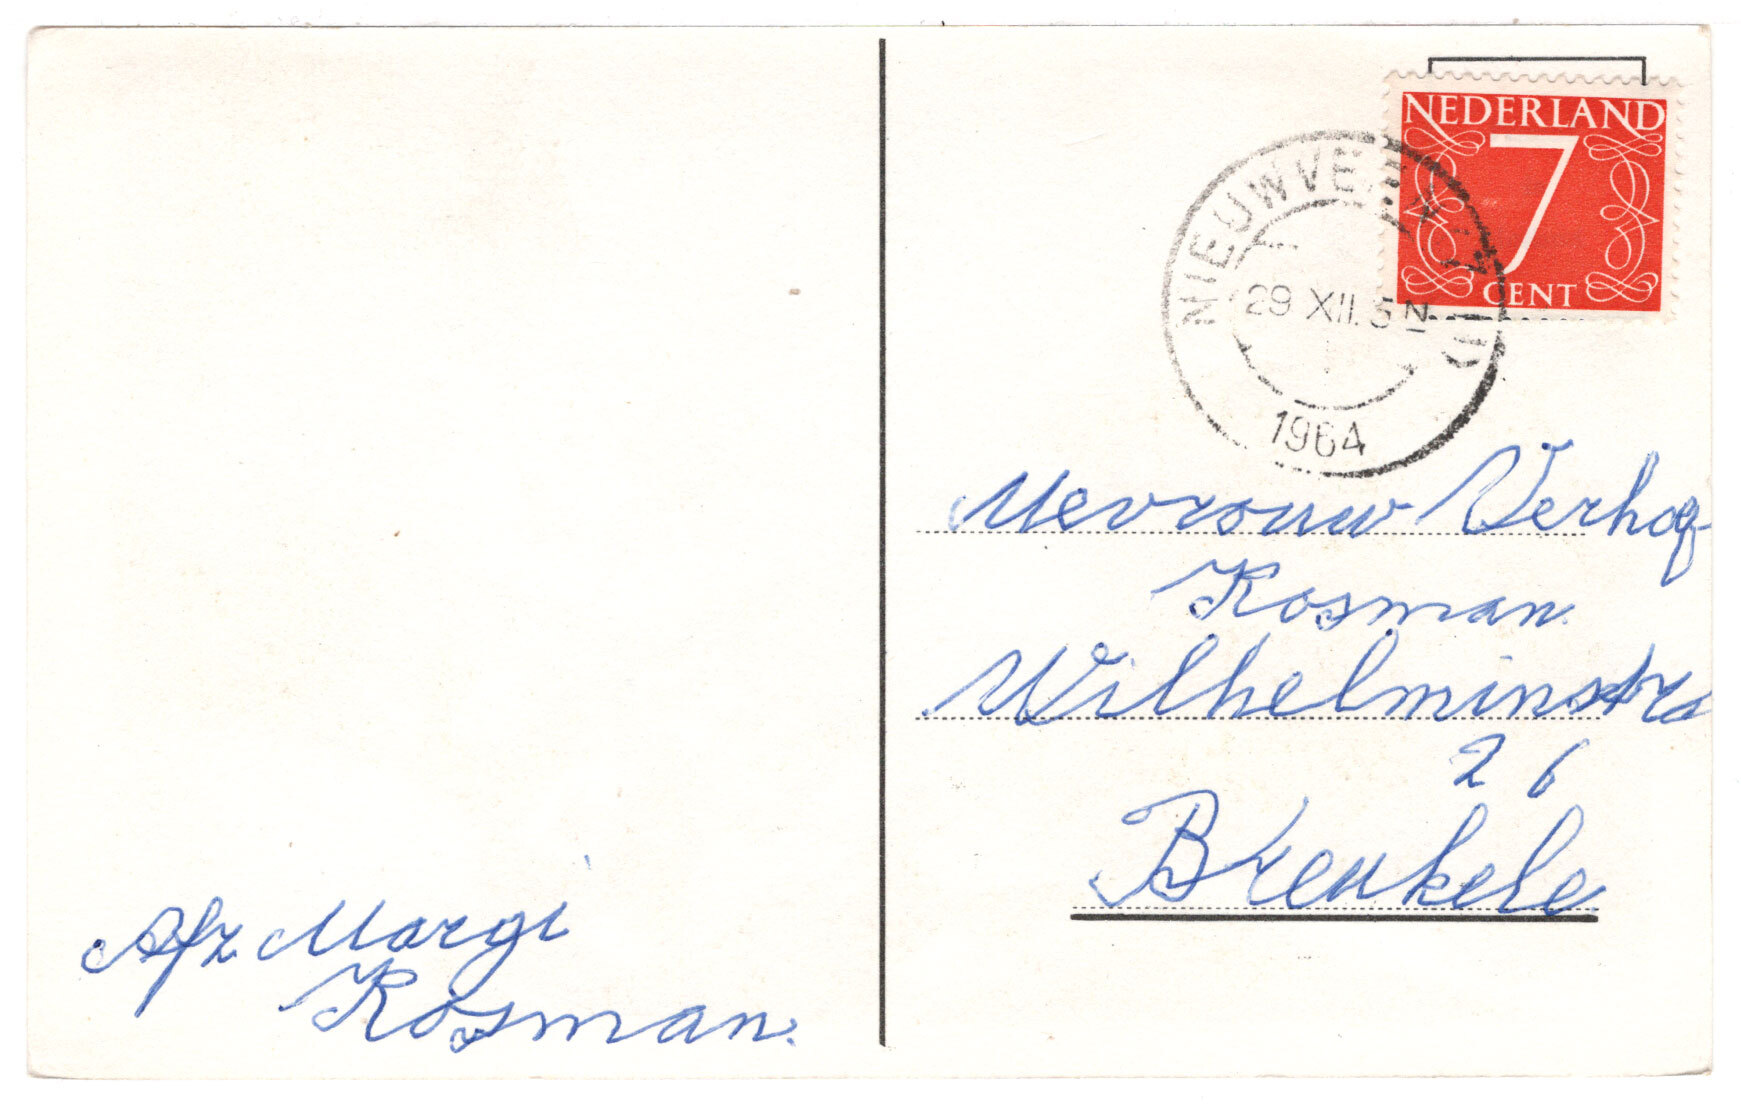 NEDERLAND
7
CENT
29 XII. 5 N
1964
Mevrouw Verhoef
Kosman.
Wilhelminastra
26
Breukele
Afz. Margi
Kosman.